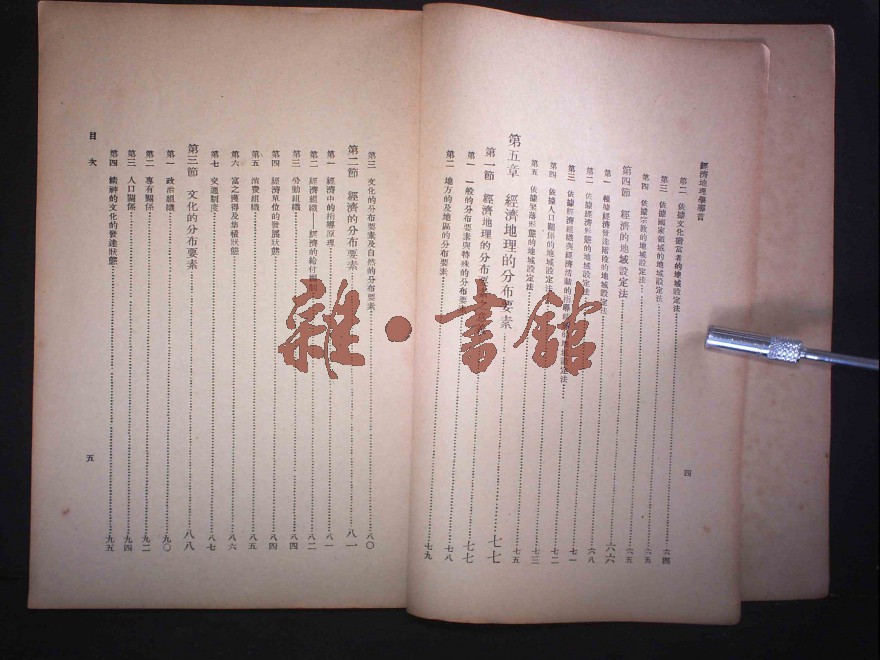 經濟地理學導言
第二 依據文化擔當者的地域設定法 六四
第三 依據國家領域的地域設定法 六五
第四 依據宗教的地域設定法 六五
第四節 經濟的地域設定法 六六
第一 種種經濟發達階段的地域設定法 六八
第二 依據經濟形態的地域設定法 七一
第三 依據經濟組織與經濟活動的指導 地域設定法 七二
第四 依據人口關係的地域設定法 七三
第五 依據聚落形態的地域設定法 七五
第五章 經濟地理的分布要素 七七
第一節 經濟地理的分布要素 七七
第一 一般的分布要素與特殊的分布要 七八
第二 地方的及地區的分布要素 七九
四
第三 文化的分布要素及自然的分布要素 八〇
第二節 經濟的分布要素 八一
第一 經濟中的指導原理 八一
第二 經濟組織——經濟的給付 八二
第三 勞動組織 八四
第四 經濟單位的發展狀態 八四
第五 消費組織 八五
第六 富之獲得及集積狀態 八六
第七 交通制度 八七
第三節 文化的分布要素 八八
第一 政治組織 九〇
第二 專有關係 九二
第三 人口關係 九四
第四 精神的文化的發達狀態 九五
目次
五
雜·書館